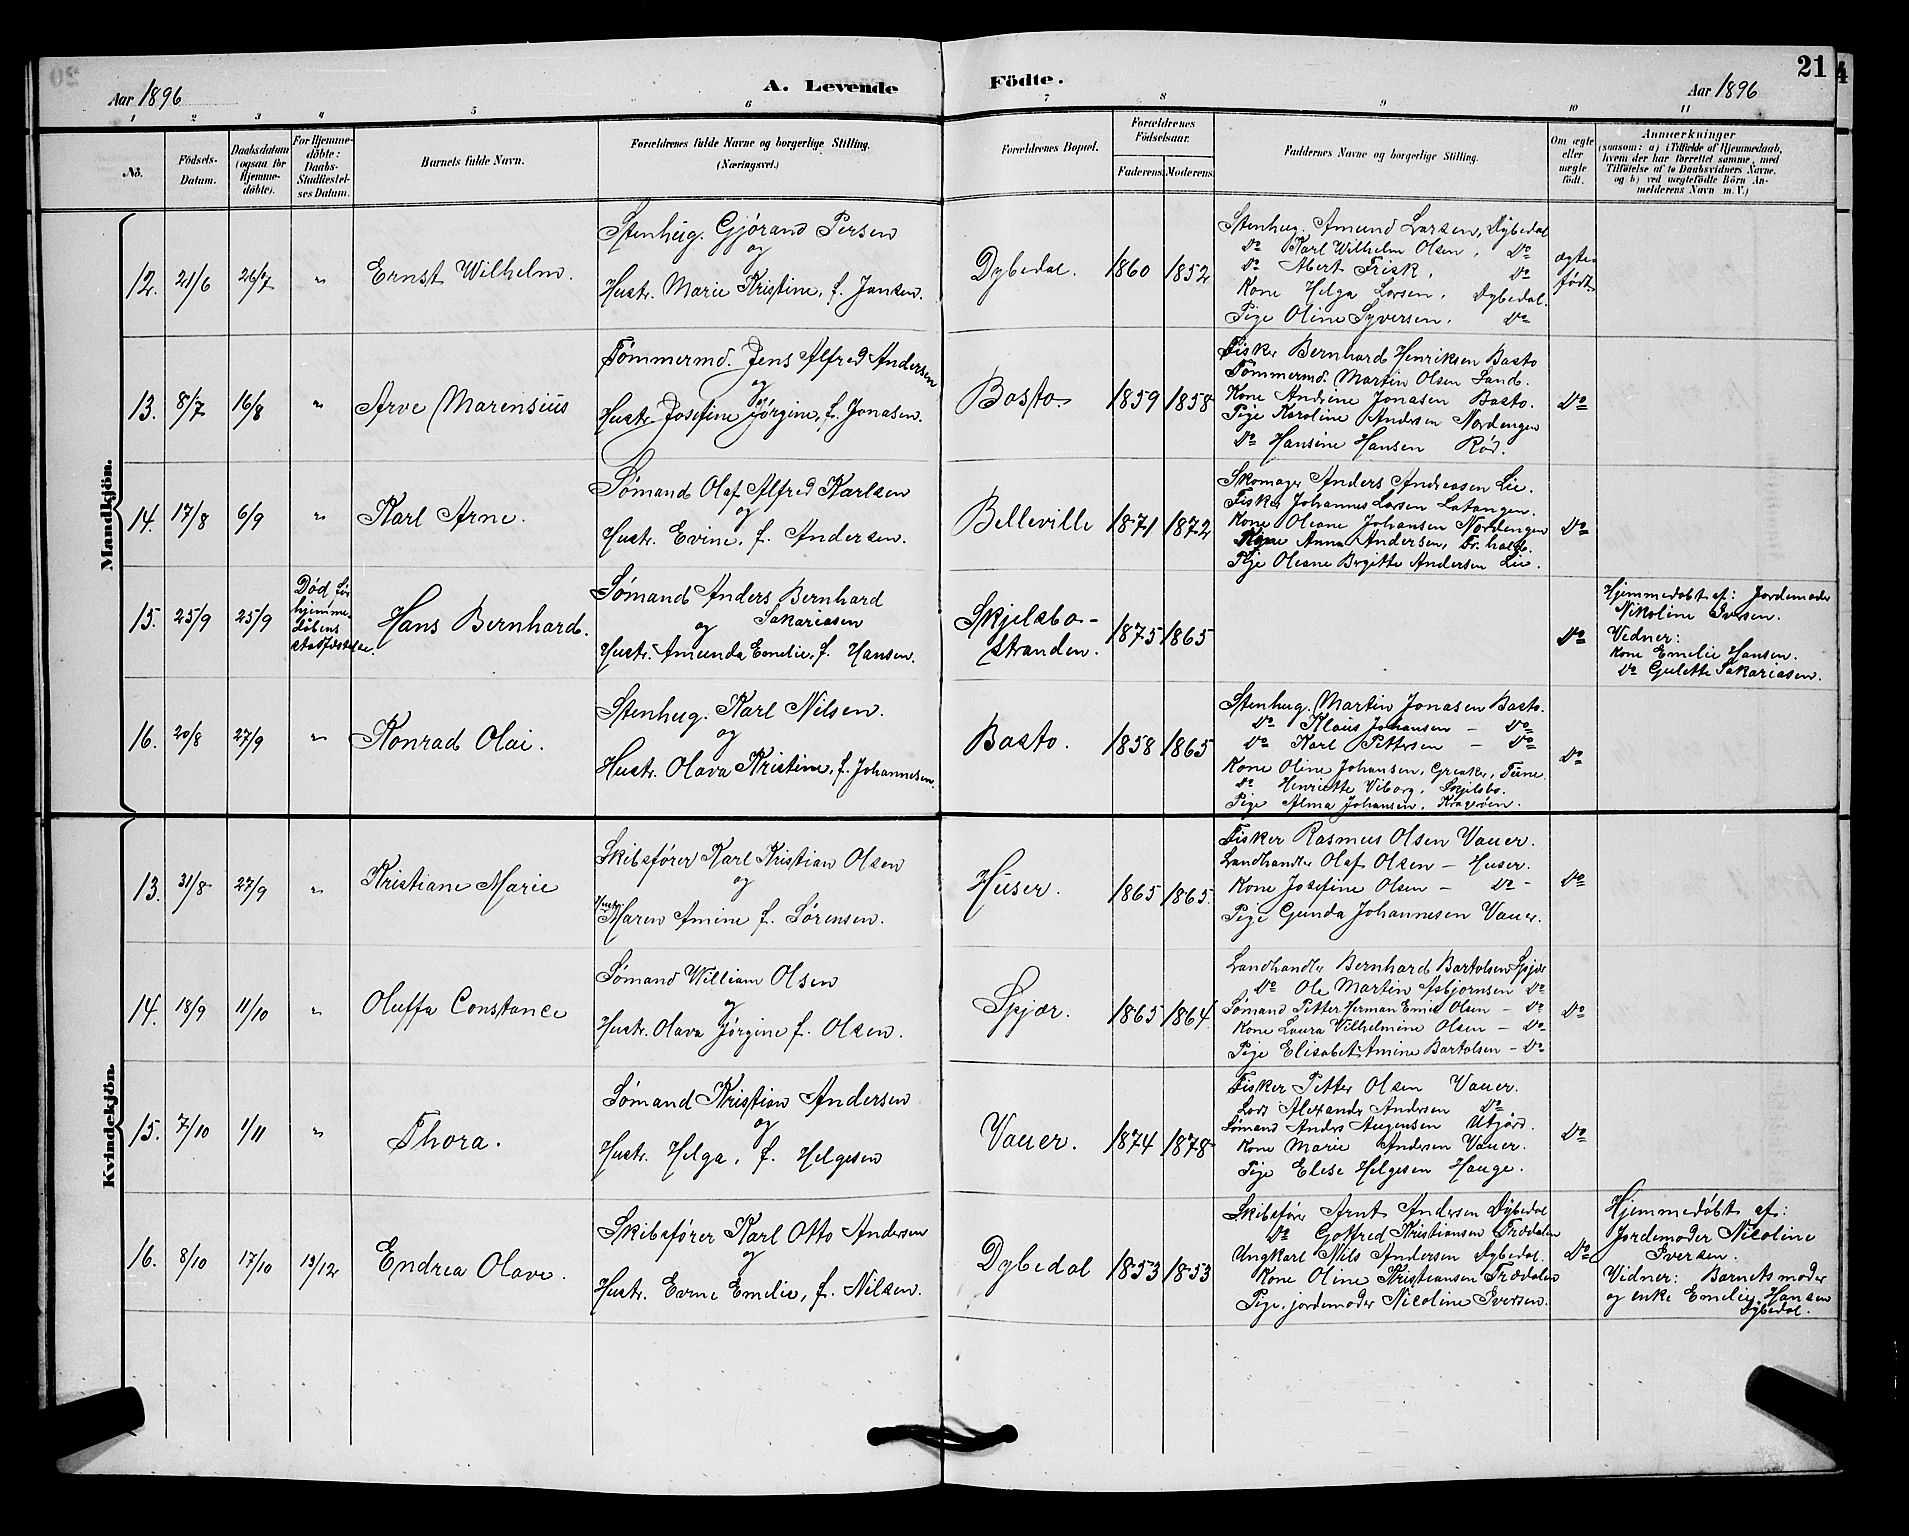 21
Aar 1896
A. Levende Födte.
Aar 1896
1 2 3 4 5 6 7 8 9 10 11
No.
Födsels-Datum.
Daabsdatum (ogsaa for Hjemme-döbte).
For Hjemme-döbte: Daabs-Stadfæstel-ses Datum.
Barnets fulde Navn.
Forældrenes fulde Navne og borgerlige Stilling. (Næringsvei.)
Forældrenes Bopæl.
Forældrenes Födselsaar.
Faderens. Moderens.
Faddernes Navne og borgerlige Stilling.
Om ægte eller uægte födt.
Anmærkninger
(saasom: a) i Tilfælde af Hjemmedaab,
hvem der har forrettet samme, med
Tilföielse af to Daabsvidners Navne.
og b) ved uægtefödte Börn An-
melderens Navn m. V.)
Mandkjön.
12. 21/6 26/7 "
Ernst Wilhelm.
Stenhug. Gjørand Persen
og
Hustr. Marie Kristine, f. Jansen.
Dybedal. 1860 1852
Stenhug. Amund Larsen, Dybedal
Do Karl Wilhelm Olsen, Do
Do Abert Frisk, Do
Kone Helga Larsen, Dybedal.
Pige Oline Syversen, Do
ægte-
født.
13. 8/7 16/8 "
Arve Marensius
Tømmermd. Jens Alfred Andersen
og
Hustr. Josefine Jørgine, f. Jonasen.
Basto. 1859 1858
Fisker Bernhard Henriksen Basto
Tømmermd. Martin Olsen Sand.
Kone Andrine Jonasen Basto.
Pige Karoline Andersen Nordengen
Do Hansine Hansen Rød.
Do
14. 17/8 6/9 "
Karl Arne.
Sømand Olaf Alfred Karlsen
og
Hustr. Evine, f. Andersen.
Belleville 1871 1872
Skomager Anders Andreasen Lie.
Fisker Johannes Larsen Latangen.
Kone Oleane Johansen Nordengen
Kone Anna Andersen, Fr.hald.
Pige Oleane Birgitte Andersen Lie.
Do
15. 25/9 25/9
Død før
hjemme
døbens
stadfæstelse.
Hans Bernhard.
Sømand Anders Bernhard
Sakariasen
og
Hustr. Amunda Emelie, f. Hansen.
Skjelsbo-
stranden. 1875 1865
Do
Hjemmedøbt af: Jordemoder
Nikoline Iversen.
Vidner:
Kone Emelie Hansen.
Do Gulette Sakariasen.
16. 20/8 27/9 "
Konrad Olai.
Stenhug. Karl Nilsen.
og
Hustr. Olava Kristine, f. Johannesen.
Basto. 1858 1865
Stenhug. Martin Jonasen Basto.
Do Klaus Johansen - Do
Do Karl Pettersen - Do
Kone Oline Johansen, Greaker, Tune.
Do Henriette Viborg, Skjelsbo.
Pige Alma Johansen, Kragrøen.
Do
Kvindekjön.
13. 31/8 27/9 "
Kristiane Marie
Skibsfører Karl Kristian Olsen
og
Hustr. Maren Amine f. Sørensen.
Huser. 1865 1865
Fisker Rasmus Olsen Vauer.
Landhandler Olaf Olsen - Huser.
Kone Josefine Olsen - Do -
Pige Gunda Johannesen Vauer.
Do
14. 18/9 11/10 "
Oluffa Constance
Sømand William Olsen
og
Hustr. Olava Jørgine f. Olsen.
Spjær. 1865 1864
Landhandler Bernhard Bartolsen Spjær
Do Ole Martin Asbjørnsen Do
Sømand Petter Herman Emil Olsen - Do
Kone Laura Vilhelmine Olsen - Do
Pige Elisabet Amine Bartolsen - Do
Do
15. 7/10 1/11 "
Thora.
Sømand Kristian Andersen
og
Hustr. Helga, f. Helgesen
Vauer. 1874 1878
Fisker Petter Olsen Vauer.
Lods Alexander Andersen Do
Sømand Anders Augensen Utgård.
Kone Marie Andersen Vauer.
Pige Elise Helgesen Hauge.
Do
16. 8/10 17/10 13/12
Endrea Olave.
Skibsfører Karl Otto Andersen
og
Hustr. Evine Emelie, f. Nilsen.
Dybedal 1853 1853
Skibsfører Arnt Andersen Dybedal
Do Gotfred Kristiansen Trædalen
Ungkarl Nils Andersen Dybedal.
Kone Oline Kristiansen Trædalen
Pige, jordemoder Nicoline Iversen.
Do
Hjemmedøbt af:
Jordemoder Nicoline
Iversen.
Vidner: Barnets moder
og enke Emelie Hansen
Dybedal.